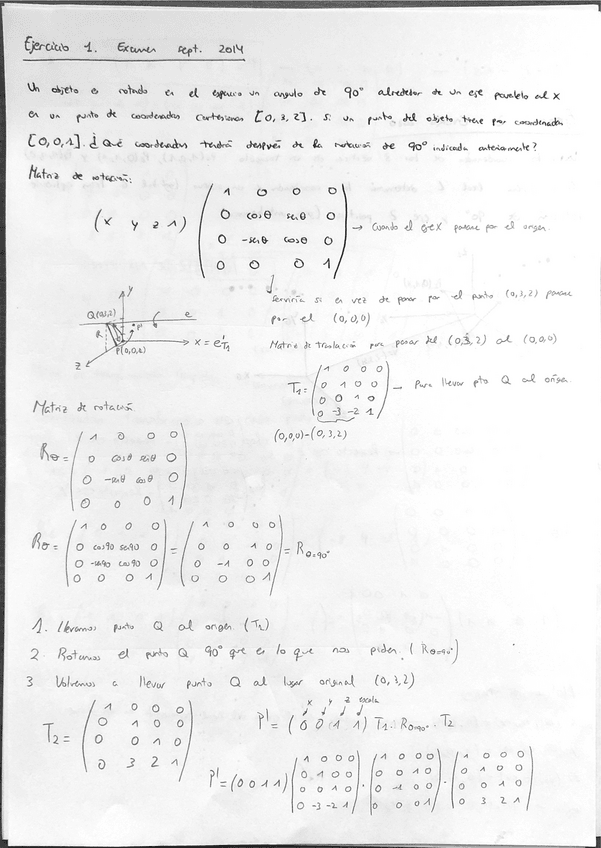 Ejercicio 1. Examen sept. 2014
Un objeto es rotado en el espacio un angulo de 90° alrededor de un eje paralelo al X
en un punto de coordenadas cartesianas [0, 3, 2]. Si un punto del objeto tiene por coordenadas
[0,0,1]. ¿Qué coordenadas tendrá después de la rotación de 90° indicada anteriormente?
Matriz de rotación:
1 0 0 0
0 cosθ senθ 0
(x y z 1)
0 -senθ cosθ 0
→ Cuando el eje X parase por el origen.
0 0 0 1
Serviría si en vez de pasar por el punto (0,3,2) parase
por el (0,0,0)
Matriz de traslación para pasar del (0,3,2) al (0,0,0)
y
e
R
P'
x = e'T1
z
T1 =
1 0 0 0
0 1 0 0
0 0 1 0
0 -3 -2 1
Para llevar pto Q al origen.
(0,0,0)-(0,3,2)
Matriz de rotación
Rθ =
1 0 0 0
0 cosθ senθ 0
0 -senθ cosθ 0
0 0 0 1
Rθ =
1 0 0 0
0 cos90 sen90 0
0 -sen90 cos90 0
0 0 0 1
=
1 0 0 0
0 0 1 0
0 -1 0 0
0 0 0 1
= Rθ=90°
1. Llevamos punto Q al origen (T1)
2 Rotamos el punto Q 90° que es lo que nos piden. (Rθ=90°)
3 Volvemos a llevar punto Q al lugar original (0,3,2)
T2 =
1 0 0 0
0 1 0 0
0 0 1 0
0 3 2 1
x y z escala
P' = (0 0 1 1) T1 · Rθ=90° · T2
P' = (0 0 1 1)
1 0 0 0
0 1 0 0
0 0 1 0
0 -3 -2 1
·
1 0 0 0
0 0 1 0
0 1 0 0
0 0 0 1
·
1 0 0 0
0 1 0 0
0 0 1 0
0 3 2 1